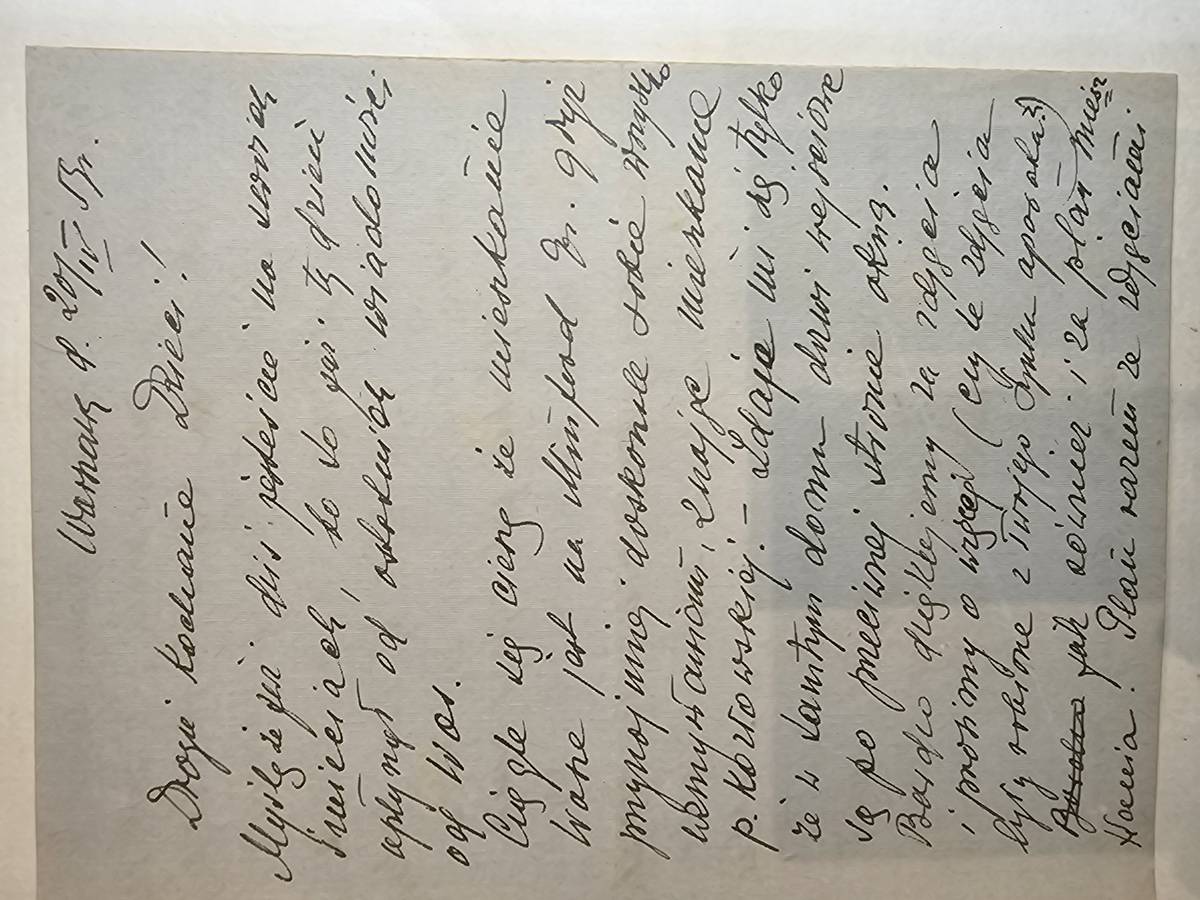 Warszawa d. 20/IV Br.
Drogie Kochane Dzieci!
Myślę że już dziś jesteście na swoich
śmieciach, bo to już tydzień
upłynął od ostatnich wiadomości
od Was.
Ciągle się cieszę że mieszkanie
Wasze jest na Mumford Dr. gdyż
przynajmniej doskonale sobie wszystko
wemyślamy, znając mieszkanie
p. Kozłowskiej. – Zdaje mi się tylko
że w tamtym domu drzwi wejściowe
są po przeciwnej stronie okna.
Bardzo dziękujemy za zdjęcia
i prosimy o więcej (czy te zdjęcia
były robione z Twojego Synku aparatu?)
jak również i za plan miesz
kania. Plan razem ze zdjęciami